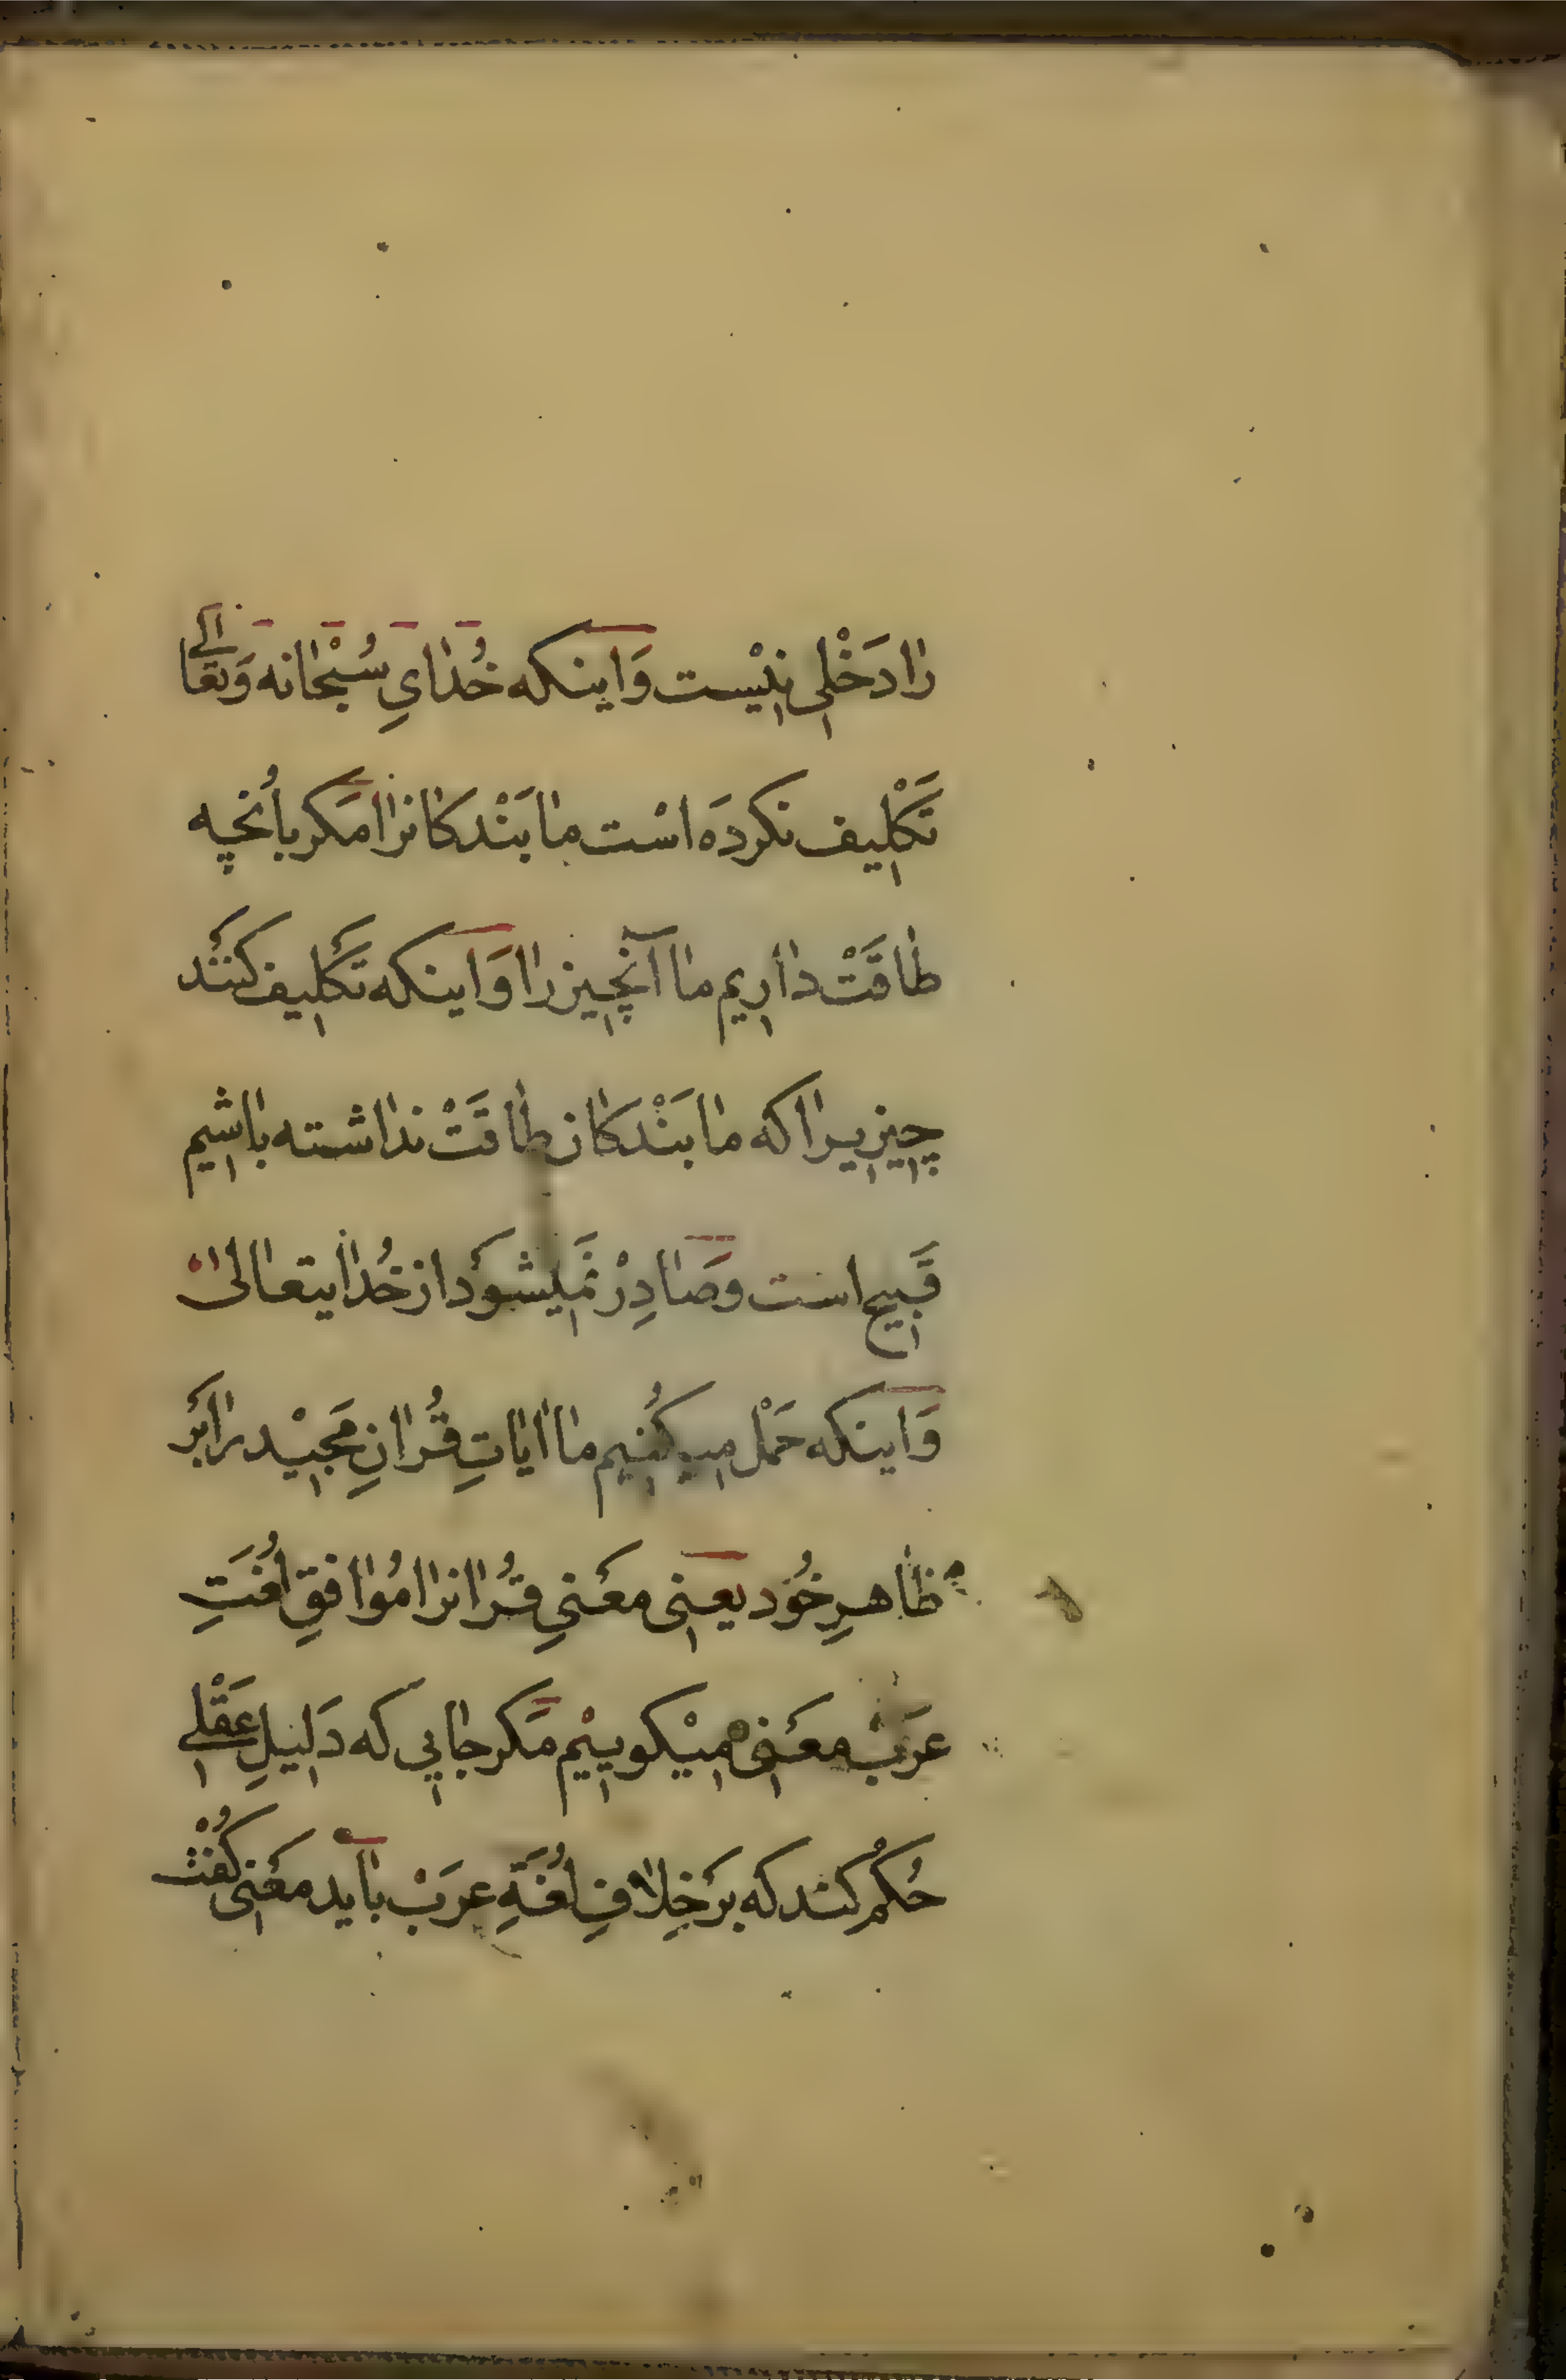 رٰا دَخْلِی نیٖسْت وَاینکه خُدٰایِ سُبْحٰانه وَتَعٰالی
تَکْلیٖف نکردَه اسْت مٰا بَنْدکٰانرٰا مَکر بأنچه
طٰاقَتْ دٰاریٖم مٰا آنچیٖز رٰا وَاینکه تَکلیٖف کنَنْد
چیٖزیٖرٰا که مٰا بَنْدکٰان طٰاقَتْ ندٰاشته بٰاشیٖم
قَبیٖح است وصَٰادِرْ نَمیٖشَوَد از خُدٰایتعٰالیٰ
وَاینکه حَمْل میٖکُنیٖم مٰا اٰیٰاتِ قُرٰانِ مَجیٖدْ رٰا بَر
ظٰاهرِ خُود یعنیٖ معَنیِ قُرٰانرٰا مُوٰافقِ لُغَتِ
عَرَبْ معَنیٖ میٖکوییٖم مَکر جٰایٖی که دَلیٖلِ عَقْلیٖ
حُکْم کند که بَر خِلٰافِ لُغَةِ عرَبْ بٰاید معَنیٖ کُفْت